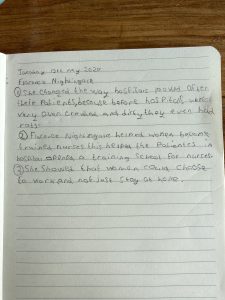 Tuesday 12th may 2020
Florence Nightingale
① She changed the way hospitals looked after
their Patients, because before hospitals were
very over crowded and dirty they even had
rats.
② Florence Nightingale helped women become
trained nurses this helped the Patientes in
hospital opened a training school for nurses
③ She Showed that women could choose
to work and not just stay at home.